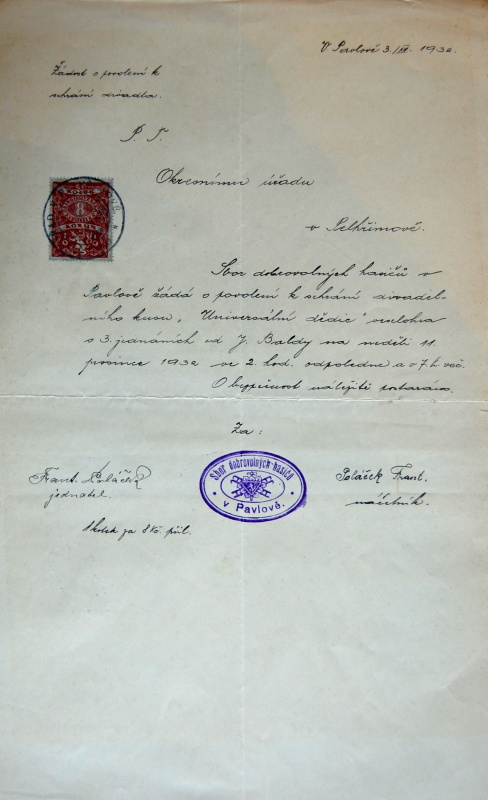 V Pavlově 3./XI. 1932.
Žádost o povolení k
sehrání divadla.
P. T.
Okresnímu úřadu
v Pelhřimově.
8
KORUN
Sbor dobrovolných hasičů v
Pavlově žádá o povolení k sehrání divadel-
ního kusu „Universální dědic" veselohra
o 3. jednáních od J. Baldy na neděli 11.
prosince 1932 ve 2. hod. odpoledne a v 7. h. več.
O bezpečnost náležitě postaráno.
Za:
Frant.
jednatel.
Sbor dobrovolných hasičů
v Pavlově.
Poláček Frant.
náčelník.
1 kolek za 8 Kč. příl.